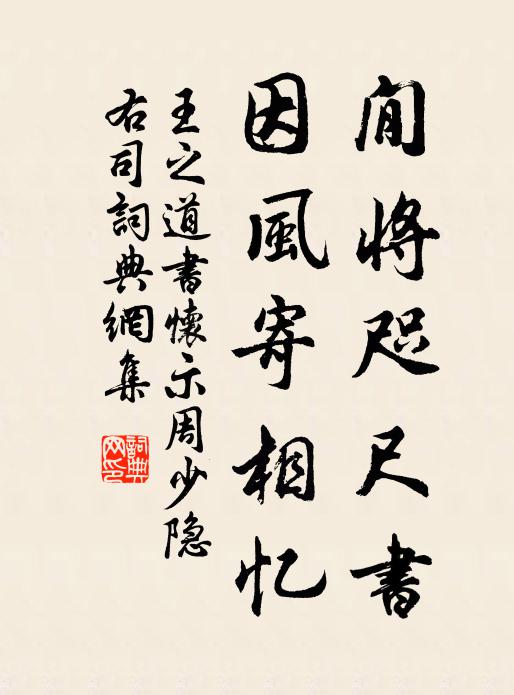 閒將咫尺書
因風寄相忆
王之道書懷示周少隐
右司詞典網集
詞典网印